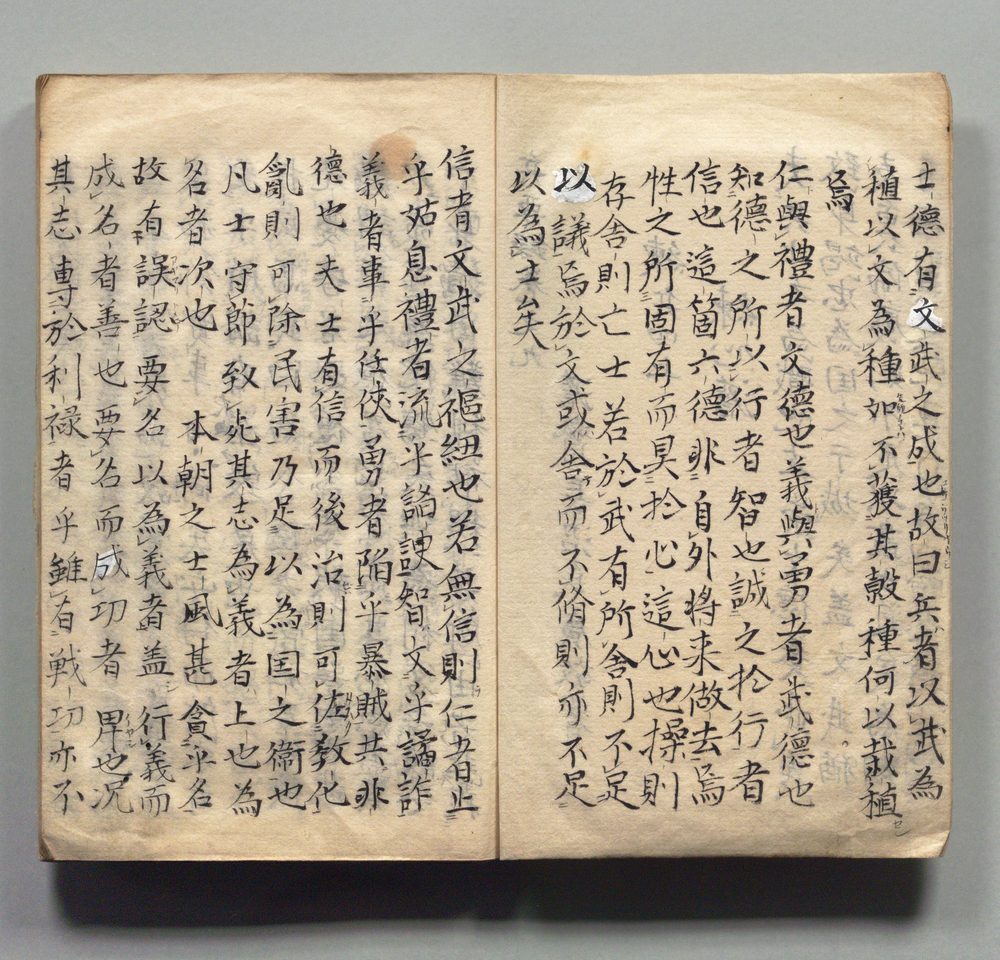 士德有文武之成也故曰兵者以武為
種以文為種如不獲其穀種何以栽種
焉
仁與禮者文德也義與勇者武德也
知德之所以行者智也誠之於行者
信也這箇六德非自外將来做去焉
性之所固有而具於心這心也操則
存舍則亡士若於武有所舍則不足
以議焉於文或舍而不脩則亦不足
以為士矣
信者文武之樞紐也若無信則仁者止
乎姑息禮者流乎諂諛智文乎譎詐
義者事乎任俠勇者陥乎暴賊共非
德也夫士有信而後治則可佐教化
亂則可除民害乃足以為国之衛也
凡士守節致死其志為義者上也為
名者次也本朝之士風甚貪乎名
故有誤認要名以為義者盖行義而
成名者善也要名而成功者卑也况
其志専於利禄者乎雖有戦功亦不